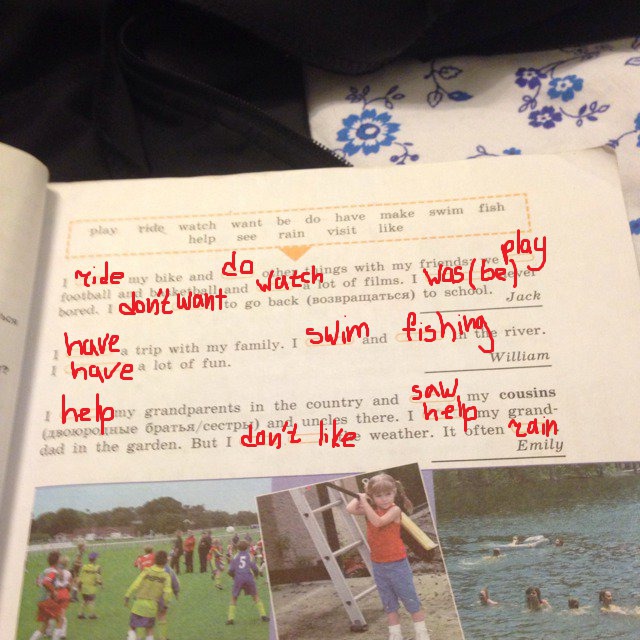 play ride watch want be do have make swim fish
help see rain visit like
I ride my bike and do other things with my friends: we play
football and basketball and watch a lot of films. I was (be) never
bored. I don't want to go back (возвращаться) to school. Jack
I have a trip with my family. I swim and fishing in the river.
I have a lot of fun. William
I help my grandparents in the country and saw my cousins
(двоюродные братья/сестры) and uncles there. I help my grand-
dad in the garden. But I don't like weather. It often rain
Emily
5